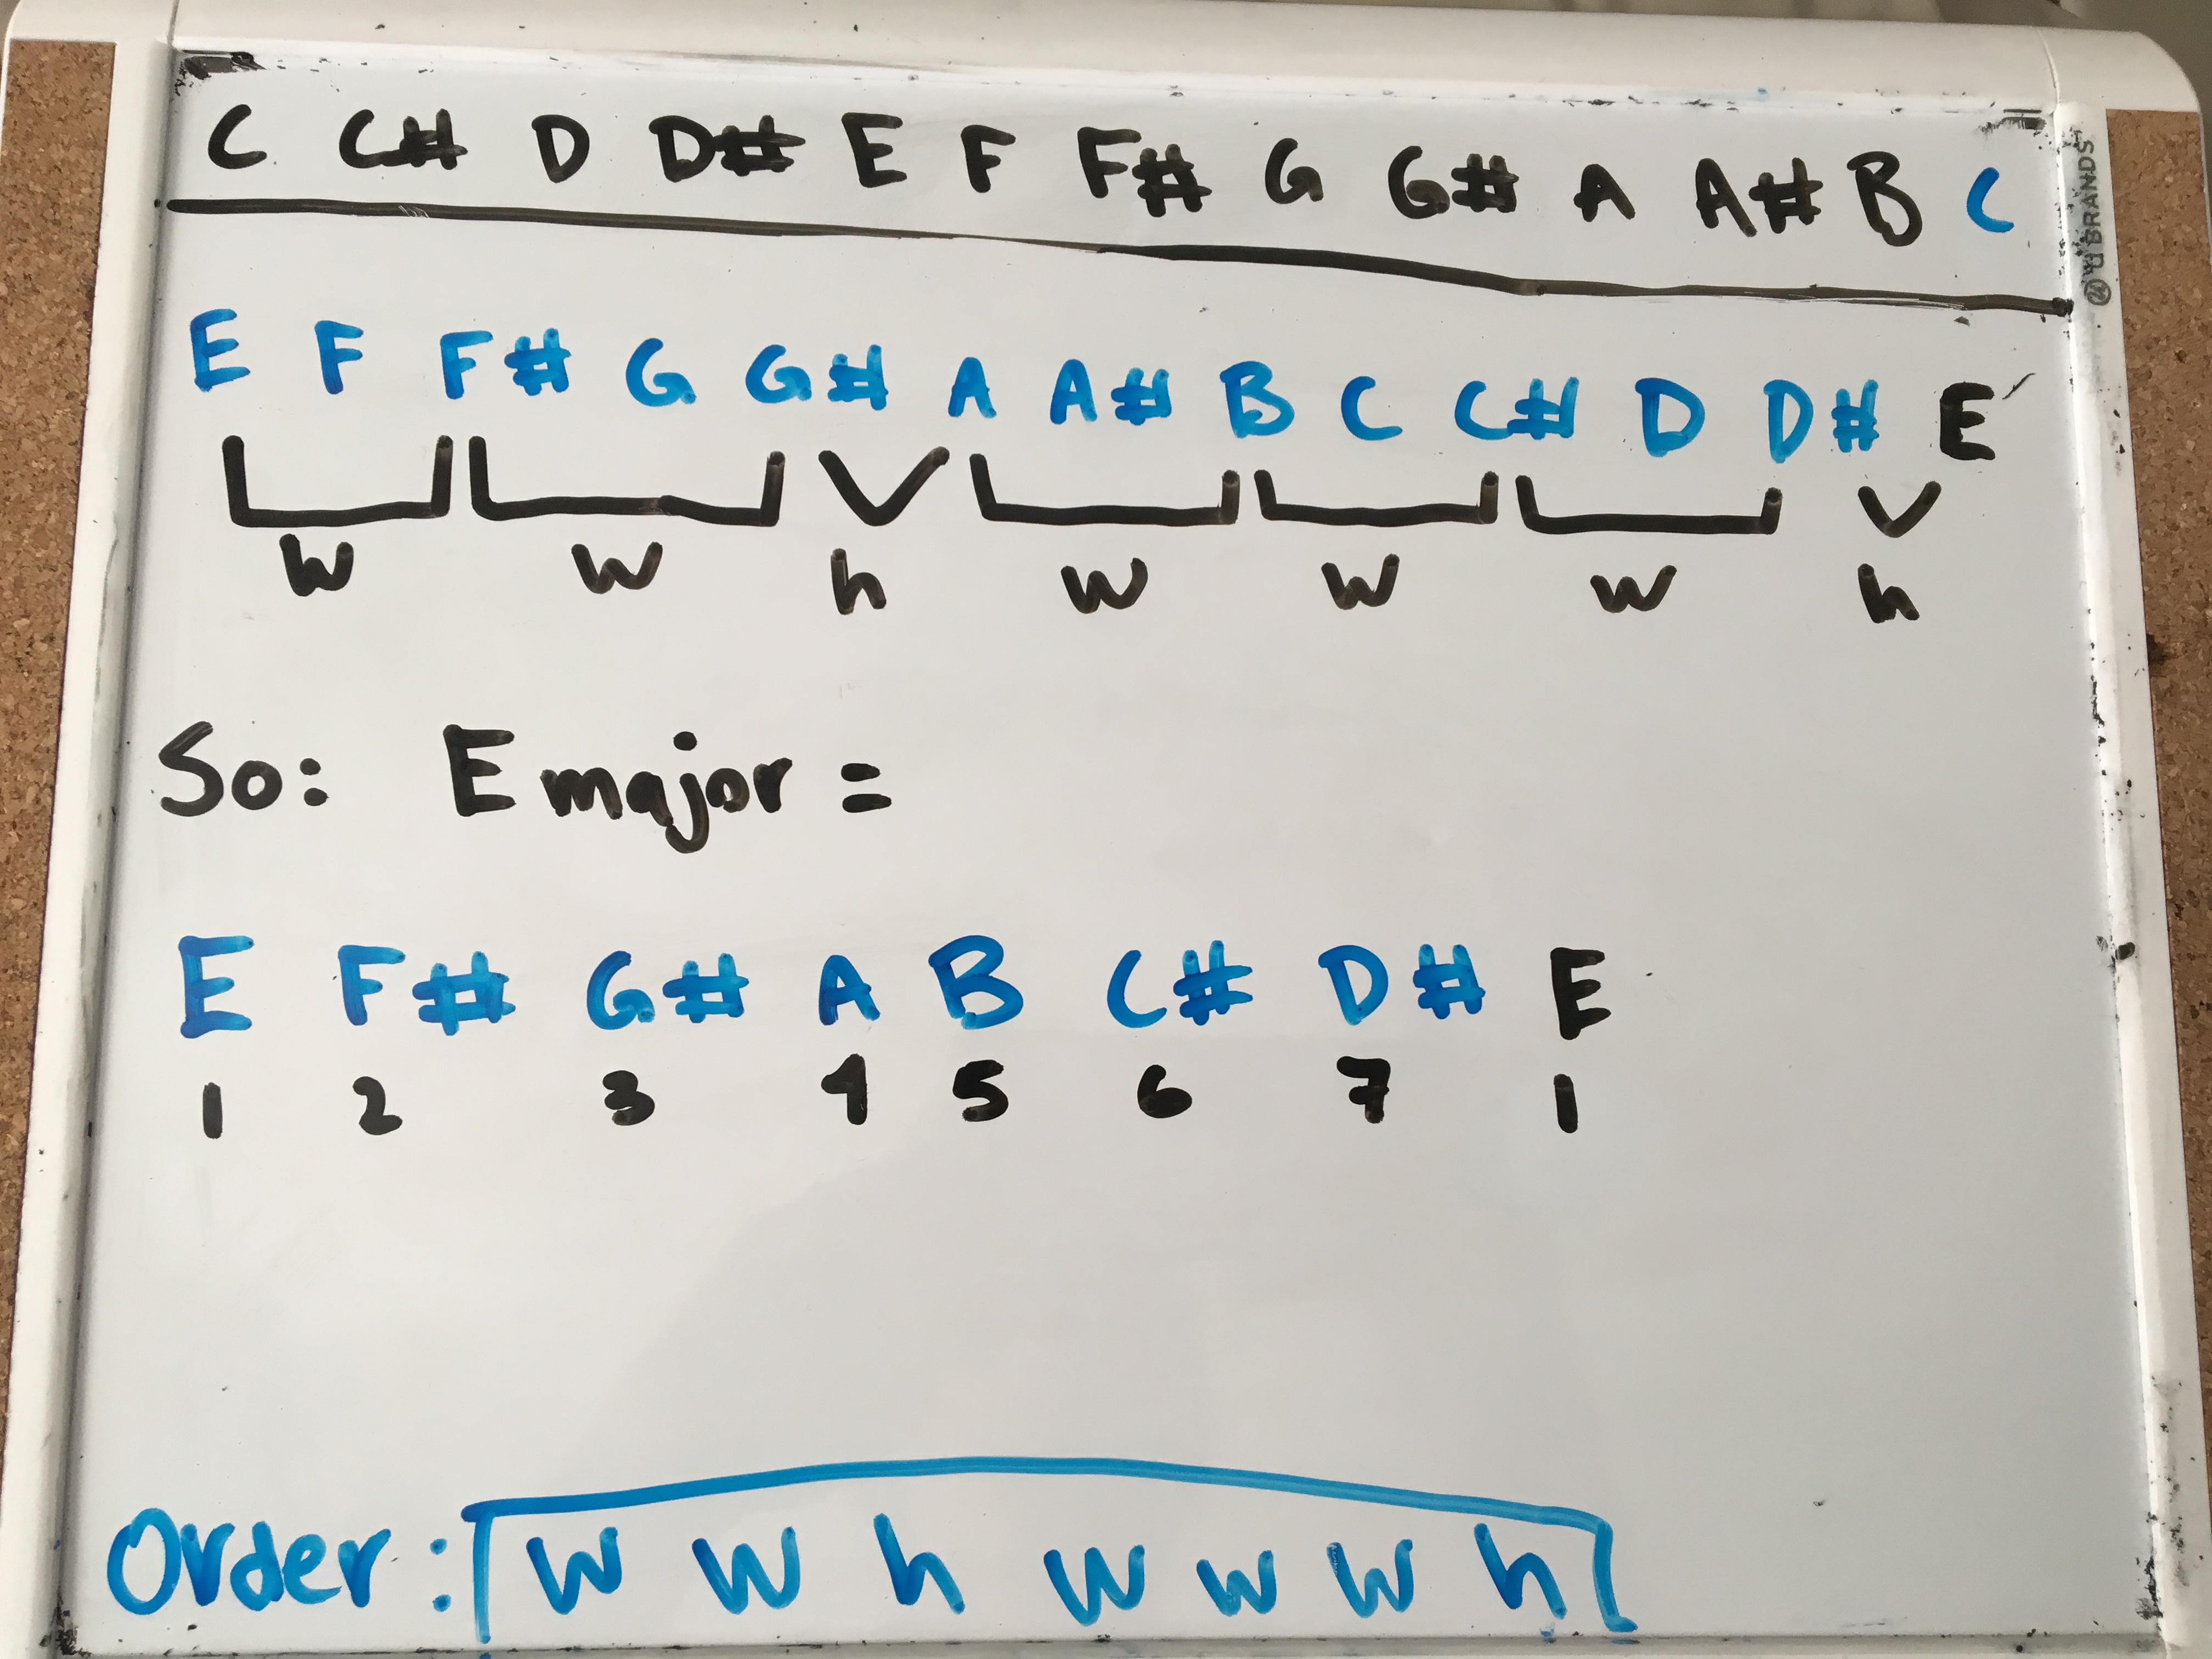 C C# D D# E F F# G G# A A# B C
E F F# G G# A A# B C C# D D# E
W W h W W W h
So: E major =
E F# G# A B C# D# E
1 2 3 4 5 6 7 1
Order: W W h W W W h
U BRANDS